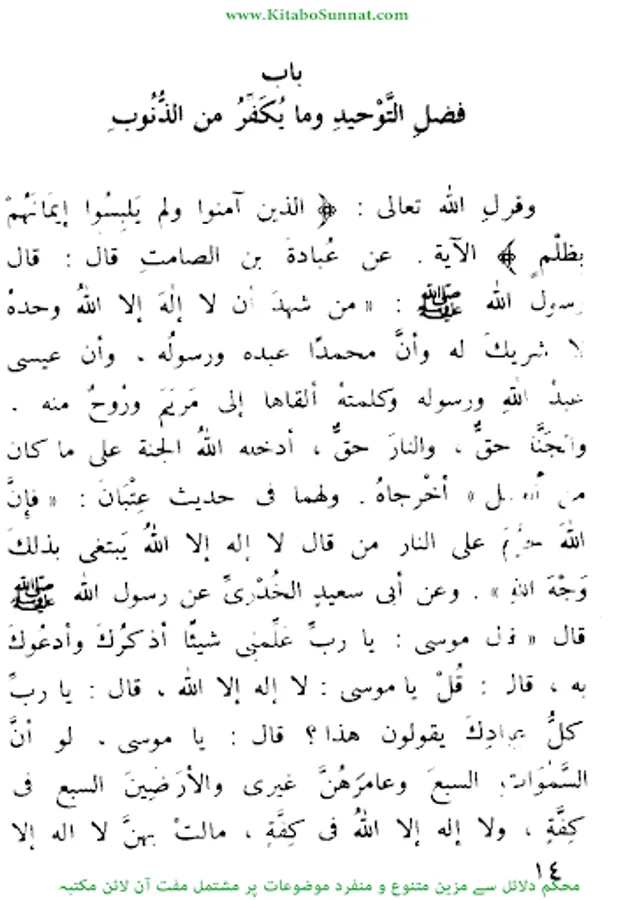 www.KitaboSunnat.com
باب
فضلِ التَّوْحيدِ وما يُكَفِّرُ من الذُّنُوبِ
وقولِ الله تعالى : ﴿ الذين آمنوا ولم يَلبِسُوا إيمَانَهُمْ
بِظلْمٍ ﴾ الآية . عن عُبادةَ بن الصامتِ قال : قال
رسول الله ﷺ : « من شهدَ أن لا إلٰهَ إلا اللهُ وحدهُ
لا شريكَ له وأنَّ محمدًا عبده ورسولُه ، وأن عيسى
عبدُ اللهِ ورسوله وكلمتهُ ألقاها إلى مَريَمَ ورُوحُ منه .
والجَنَّةَ حقٌّ ، والنارَ حقٌّ ، أدخله اللهُ الجنة على ما كان
من العمل » أخْرجاهُ . ولهما فى حديث عِتْبَانَ : « فإنَّ
اللهَ حرَّمَ على النار من قال لا إله إلا اللهُ يَبتغى بذلكَ
وَجْهَ اللهِ » . وعن أبى سعيدٍ الخُدْرىِّ عن رسول الله ﷺ
قال « قال موسى : يا ربِّ علِّمنى شيئًا أذكرُكَ وأدعُوكَ
به ، قال : قُلْ يا موسى : لا إله إلا الله ، قال : يا ربِّ
كلُّ عبادِكَ يقولون هذا ؟ قال : يا موسى ، لو أنَّ
السَّمٰوَاتِ السبعَ وعامرَهُنَّ غيرى والأرَضِينَ السبع فى
كِفَّةٍ ، ولا إله إلا اللهُ فى كِفَّةٍ ، مالتْ بهنَّ لا اله إلا
١٤
محکم دلائل سے مزین متنوع و منفرد موضوعات پر مشتمل مفت آن لائن مکتبہ